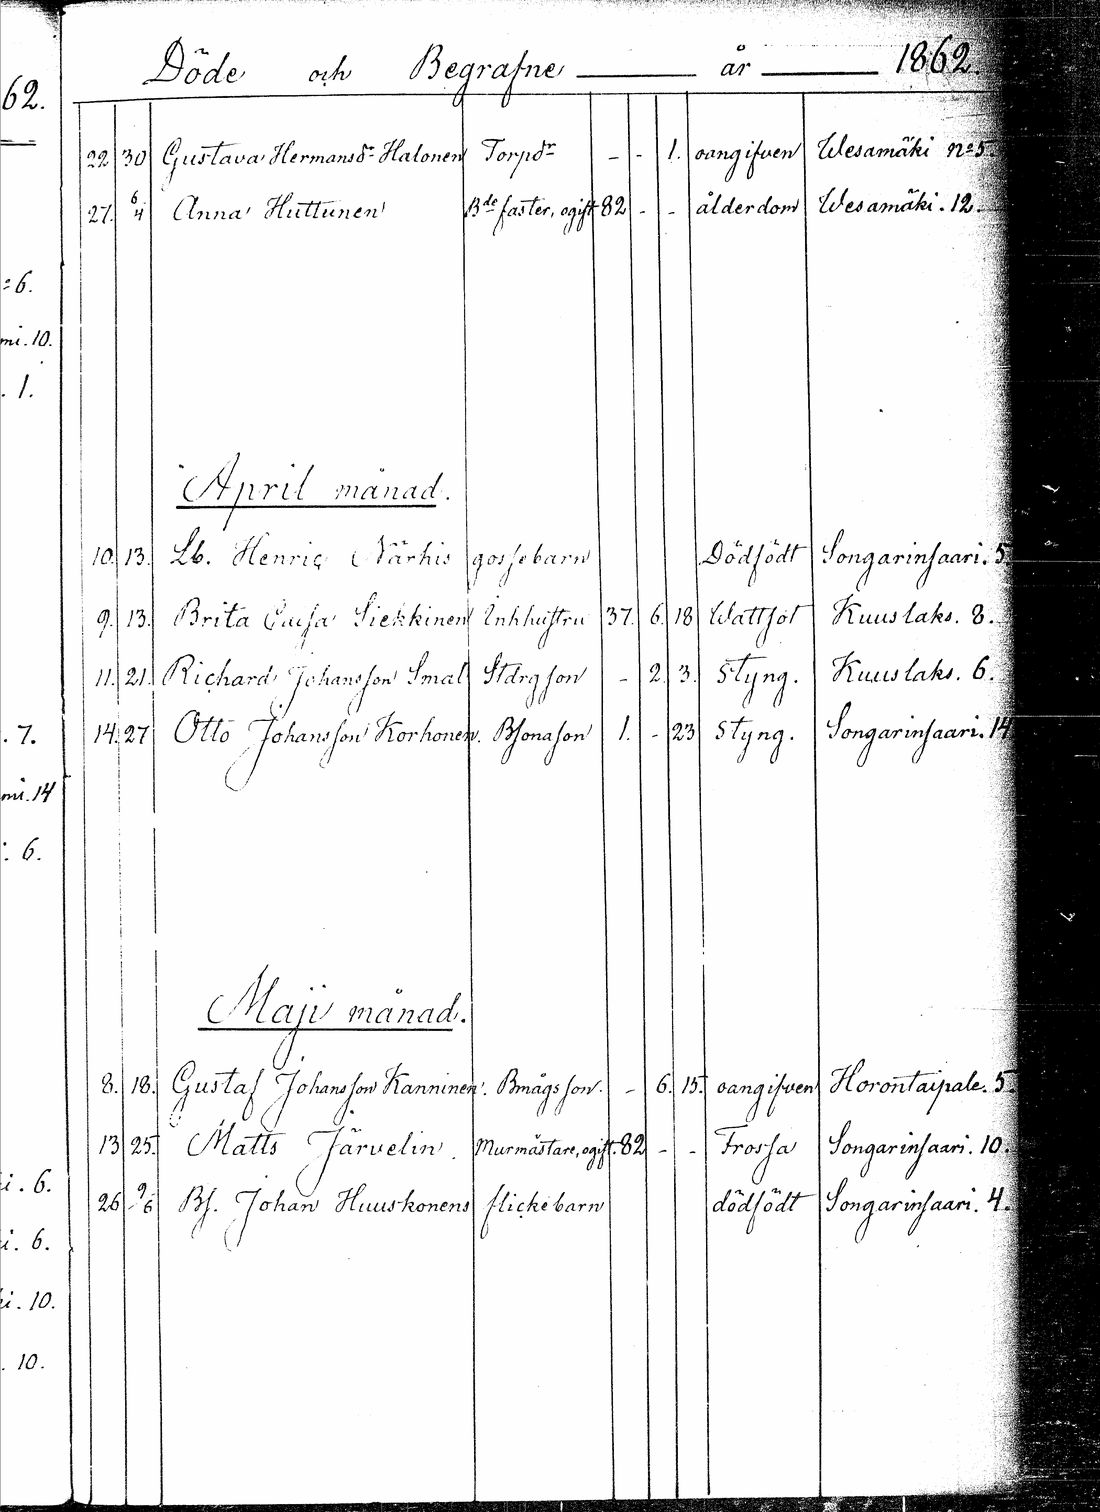 62.
Döde och Begrafne år 1862.
22 30 Gustava Hermansdr Halonen Torpdr - - 1. oangifven Wesamäki no 5
27. 6/4 Anna Huttunen Bde faster, ogift 82 - - ålderdom Wesamäki. 12.
6.
mi. 10.
. 1.
April månad.
10. 13. Lb. Henric Närhis gossebarn Dödfödt Songarinsaari. 5
9. 13. Brita Cajsa Siekkinen Inhhustru 37. 6. 18 Wattsot Kuuslaks. 8.
11. 21. Richard Johansson Smal Stdrgson - 2. 3. Styng. Kuuslaks. 6.
. 7. 14. 27 Otto Johansson Korhonen. Bsonason 1. - 23 Styng. Songarinsaari. 14
mi. 14
. 6.
Maji månad.
8. 18. Gustaf Johansson Kanninen. Bmågsson. - 6. 15. oangifven Horontaipale. 5
13 25. Matts Järvelin. Murmästare, ogift. 82 - - Frossa Songarinsaari. 10.
i. 6. 26 9/6 Bs. Johan Huuskonens flickebarn dödfödt Songarinsaari. 4.
i. 6.
ki. 10.
. 10.